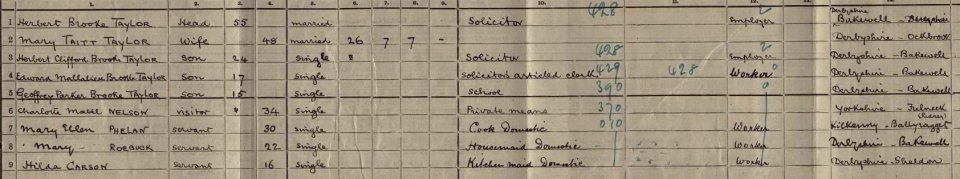 1. 2. 3. 4. 5. 6. 7. 8. 9. 10. 11. 12. 13. 14.
1 Herbert Brooke TAYLOR Head 55 married Solicitor 428 Employer 2 Derbyshire Bakewell - Derbyshire
2 Mary TAITT TAYLOR Wife 48 married 26 7 7 - Derbyshire - Ockbrook
3 Herbert Clifford Brooke TAYLOR son 24 single Solicitor 428 Employer 2 Derbyshire - Bakewell
4 Edward Mallalieu Brooke TAYLOR son 17 single solicitors articled clerk 429 428 Worker 0 Derbyshire - Bakewell
5 Geoffrey Parker Brooke TAYLOR son 15 single school 390 0 Derbyshire - Bakewell
6 Charlotte Mabel NELSON visitor 34 single Private means 370 Yorkshire - Fulneck
7 Mary Ellen PHELAN servant 30 single Cook Domestic 010 Worker Kilkenny - Ballyragget
8 Mary ROEBUCK servant 22 single Housemaid Domestic Worker Derbyshire - Bakewell
9 Hilda CARSON servant 16 single Kitchen maid Domestic Worker Derbyshire - Sheldon